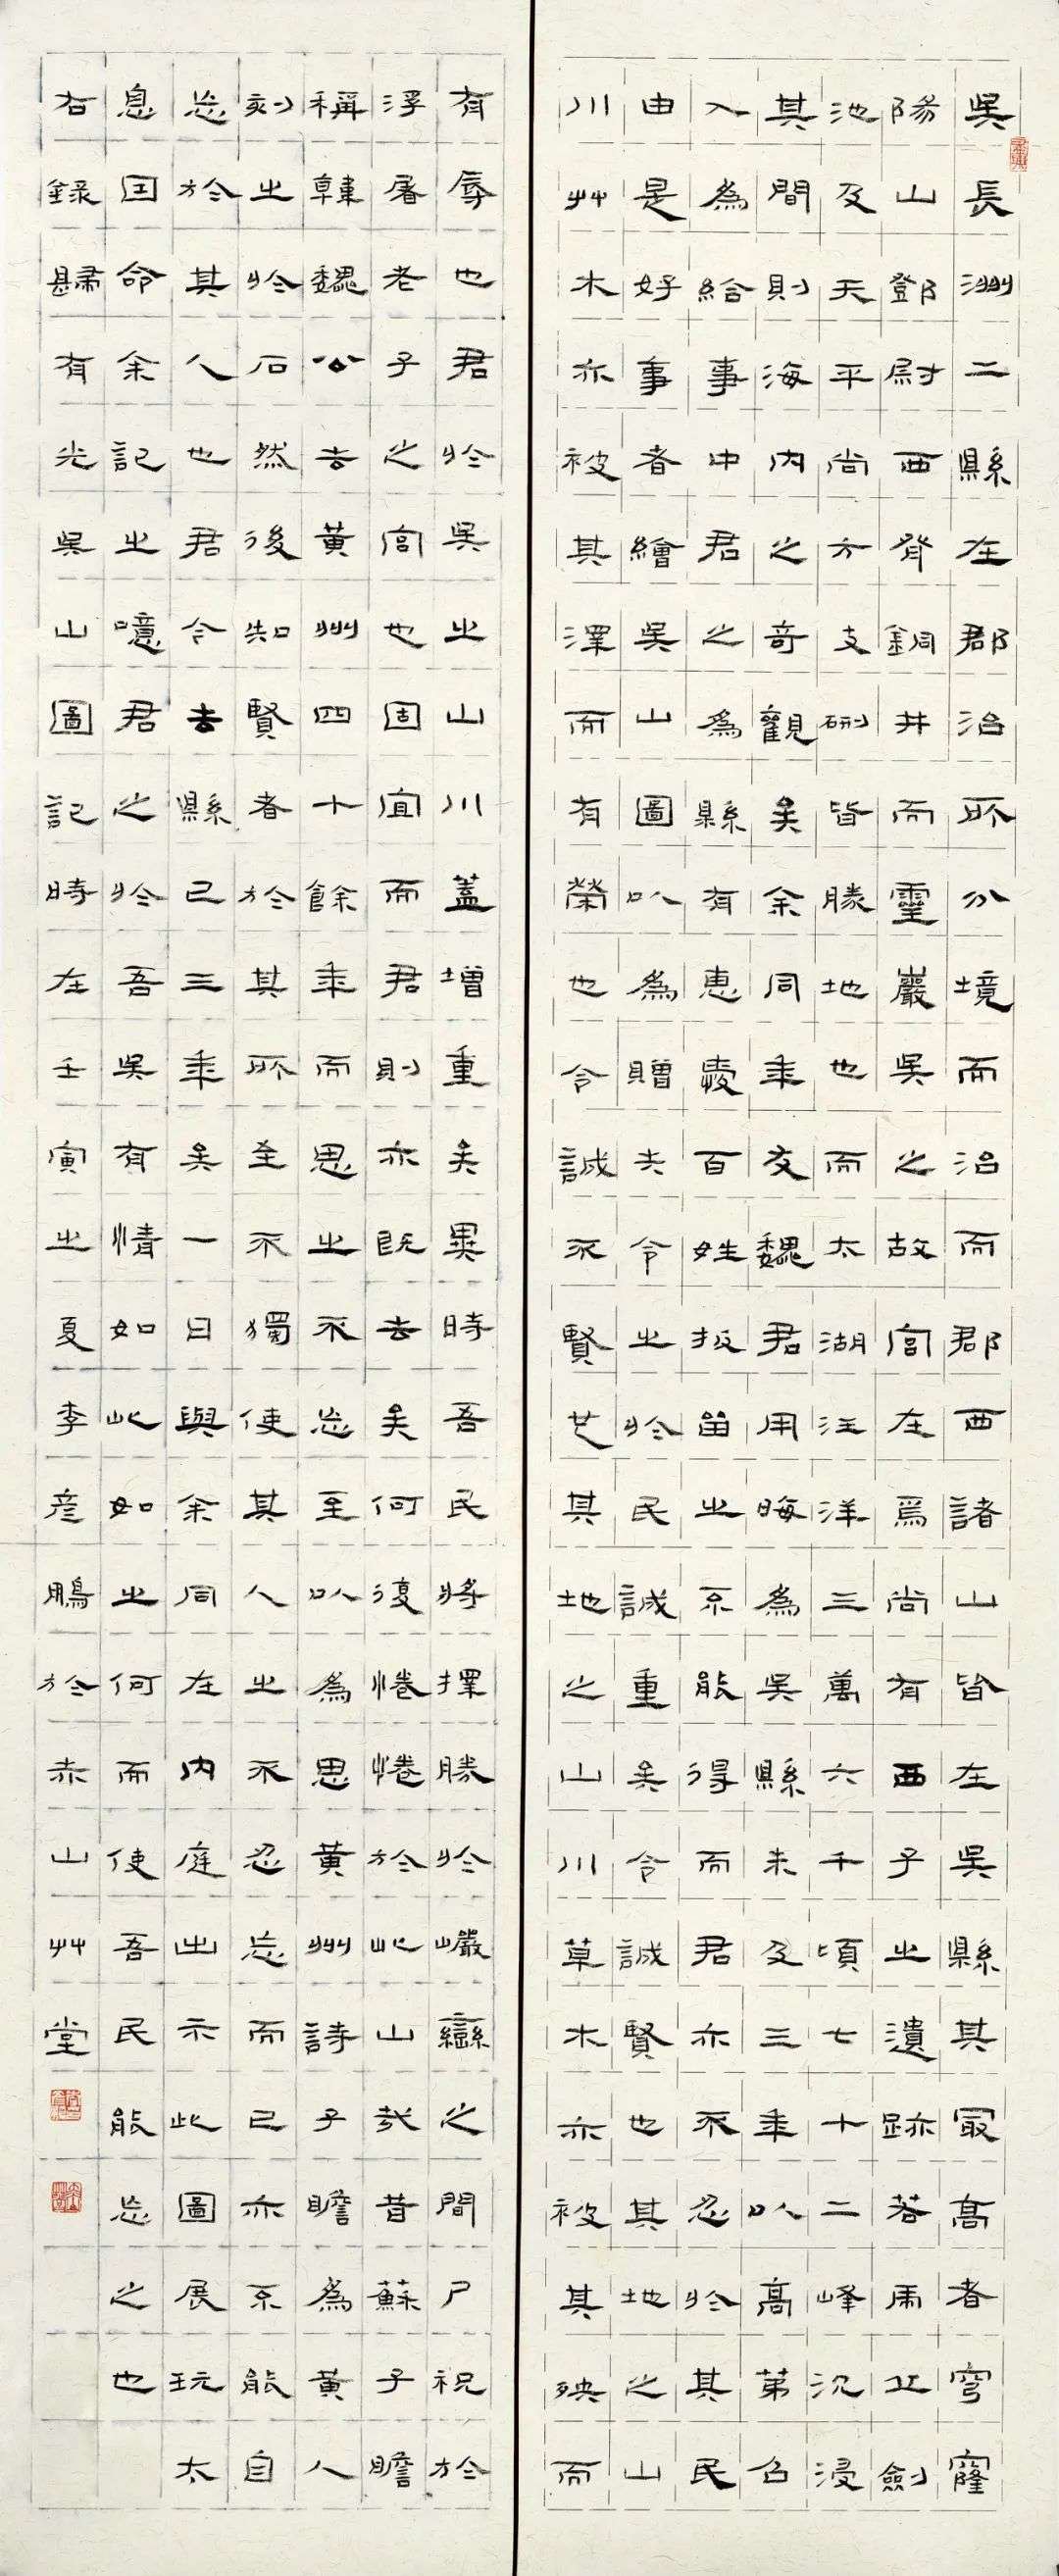 吳長洲二縣在郡治所分境而治而郡西諸山皆在吳縣其冣高者穹窿
陽山鄧尉西脊銅井而靈巖吳之故宮在焉尚有西子之遺跡若虎丘劍
池及天平尚方支硎皆勝地也而太湖汪洋三萬六千頃七十二峰沉浸
其間則海內之奇觀矣余同年友魏君用晦為吳縣未及三年以高第召
入為給事中君之為縣有惠愛百姓扳留之不能得而君亦不忍於其民
由是好事者繪吳山圖以為贈夫令之於民誠重矣令誠賢也其地之山
川艸木亦被其澤而有榮也令誠不賢也其地之山川草木亦被其殃而
有辱也君於吳之山川蓋增重矣異時吾民將擇勝於巖巒之間尸祝於
浮屠老子之宮也固宜而君則亦既去矣何復惓惓於此山哉昔蘇子瞻
稱韓魏公去黃州四十餘年而思之不忘至以為思黃州詩子瞻為黃人
刻之於石然後知賢者於其所至不獨使其人之不忍忘而已亦不能自
忘於其人也君今去縣已三年矣一日與余同在內庭出示此圖展玩太
息因命余記之噫君之於吾吳有情如此如之何而使吾民能忘之也
右錄歸有光吳山圖記時在壬寅之夏李彥鵬於赤山艸堂